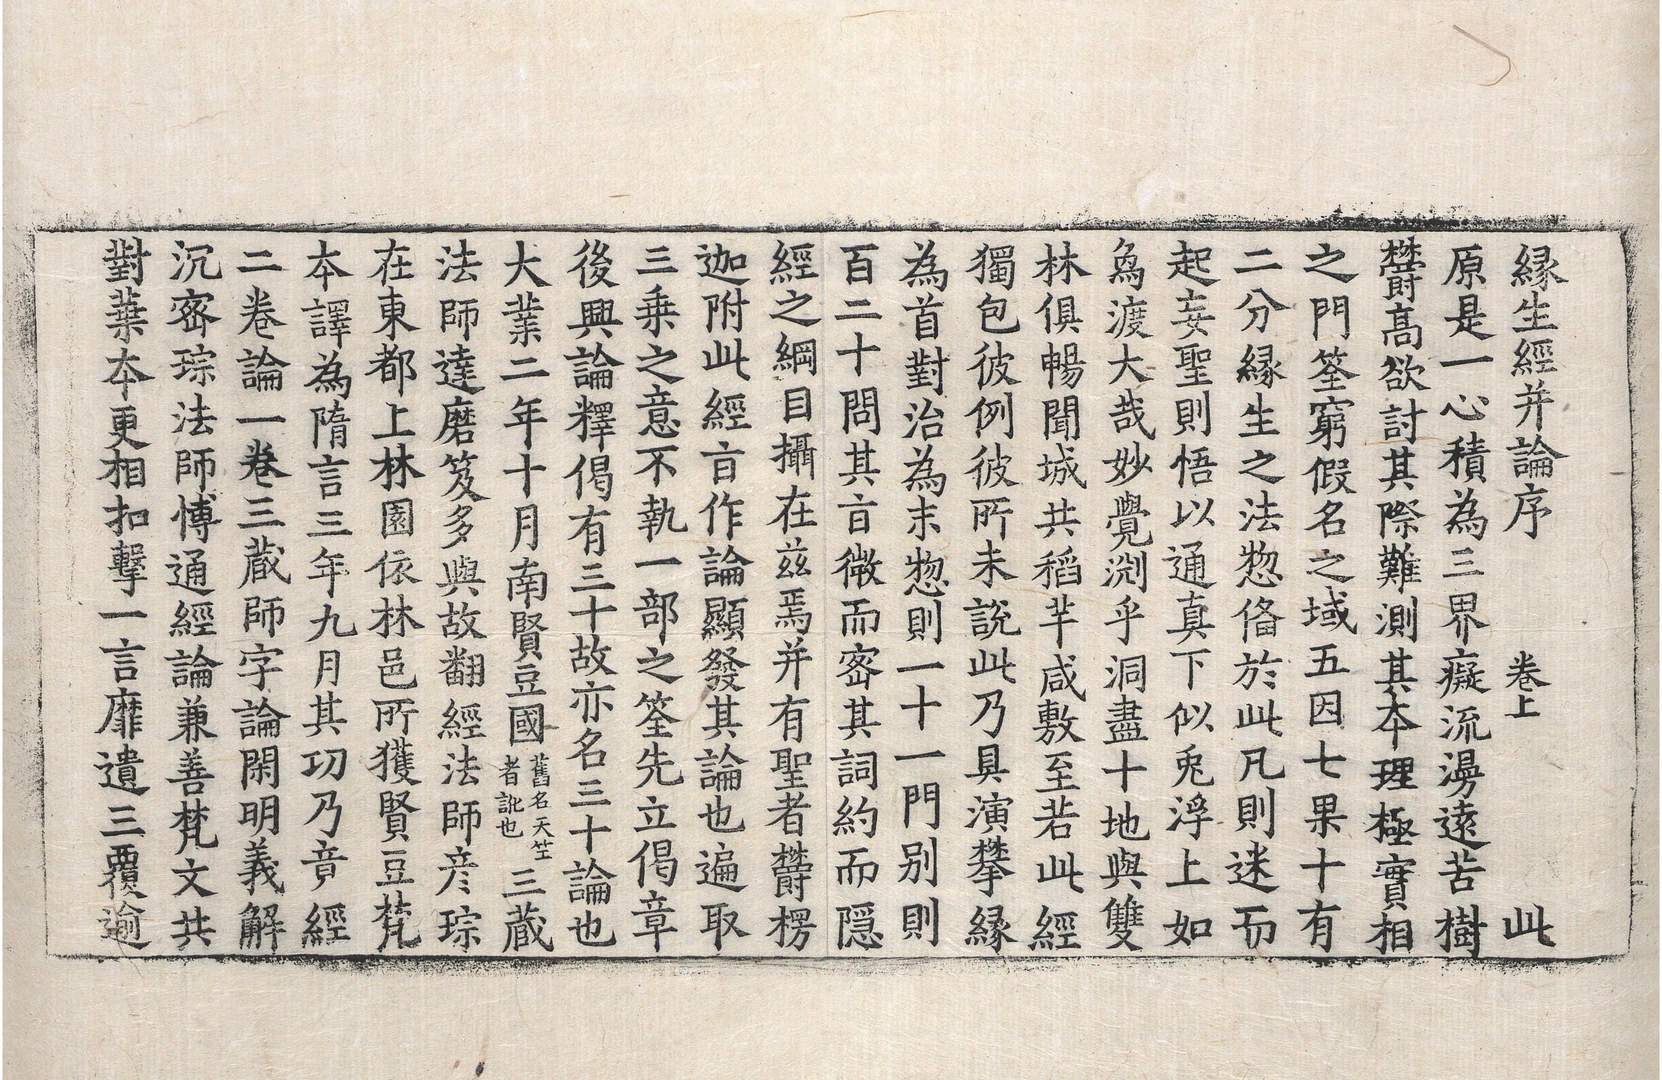 縁生經并論序 卷上 此
原是一心積為三界癡流漫遠苦樹
欝高欲討其際難測其本理極實相
之門筌窮假名之域五因七果十有
二分縁生之法惣俻於此凡則迷而
起妄聖則悟以通真下似兎浮上如
為渡大哉妙覺渕乎洞盡十地與雙
林俱暢聞城共稻芉咸敷至若此經
獨包彼例彼所未說此乃具演攀縁
為首對治為末惣則一十一門别則
百二十問其㫖微而宻其詞約而隠
經之綱目攝在兹焉并有聖者欝楞
迦附此經㫖作論顯發其論也遍取
三乗之意不執一部之筌先立偈章
後興論釋偈有三十故亦名三十論也
大業二年十月南賢豆國舊名天竺者訛也三蔵
法師達磨笈多與故翻經法師彦琮
在東都上林園依林邑所獲賢豆梵
本譯為隋言三年九月其功乃竟經
二卷論一卷三蔵師字論閑明義解
沉宻琮法師博通經論兼善梵文共
對葉本更相扣擊一言靡遺三覆逾